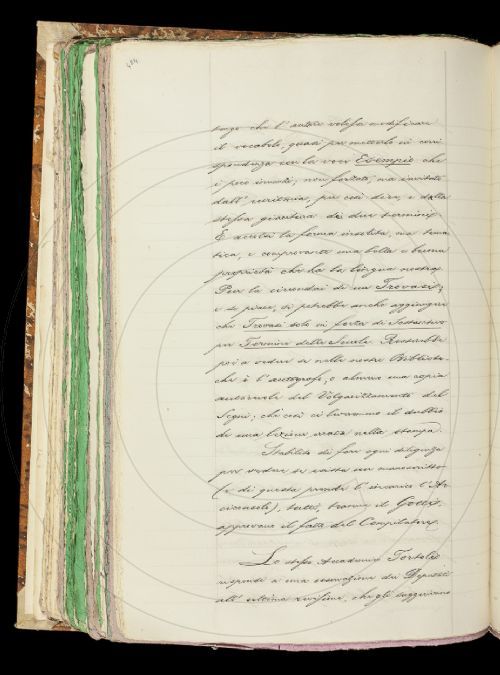 404
tempo che l'autore volesse modificare
il vocabolo, quasi per metterlo in corri
spondenza con la voce Esempio che
è poco innanzi; non forzato, ma invitato
dall'euritmia, per così dire, e dalla
stessa giacitura dei due termini.
È accettata la forma insolita, ma tema
tica, e comprovante una bella e buona
proprietà che ha la lingua nostra.
Per la circondai di un Trovasi,
e se piace, si potrebbe anche aggiungere
che Trovasi solo in forza di Sostantivo
per Termine delle Scuole. Resterebbe
poi a vedere se nelle nostre Bibliote-
che è l'autografo, o almeno una copia
autorevole del Volgarizzamento del
Segni; che così ci leveremmo il dubbio
di una lezione errata nella stampa.
Stabilito di fare ogni diligenza
per vedere se esista un manoscritto
(e di questo prende l'incarico l'Ar
ciconsolo), tutti, tranne il
approvano il fatto del Compilatore.
Lo stesso Accademico Tortoli
risponde a una osservazione dei Deputati
all'ultima revisione, che gli suggerivano